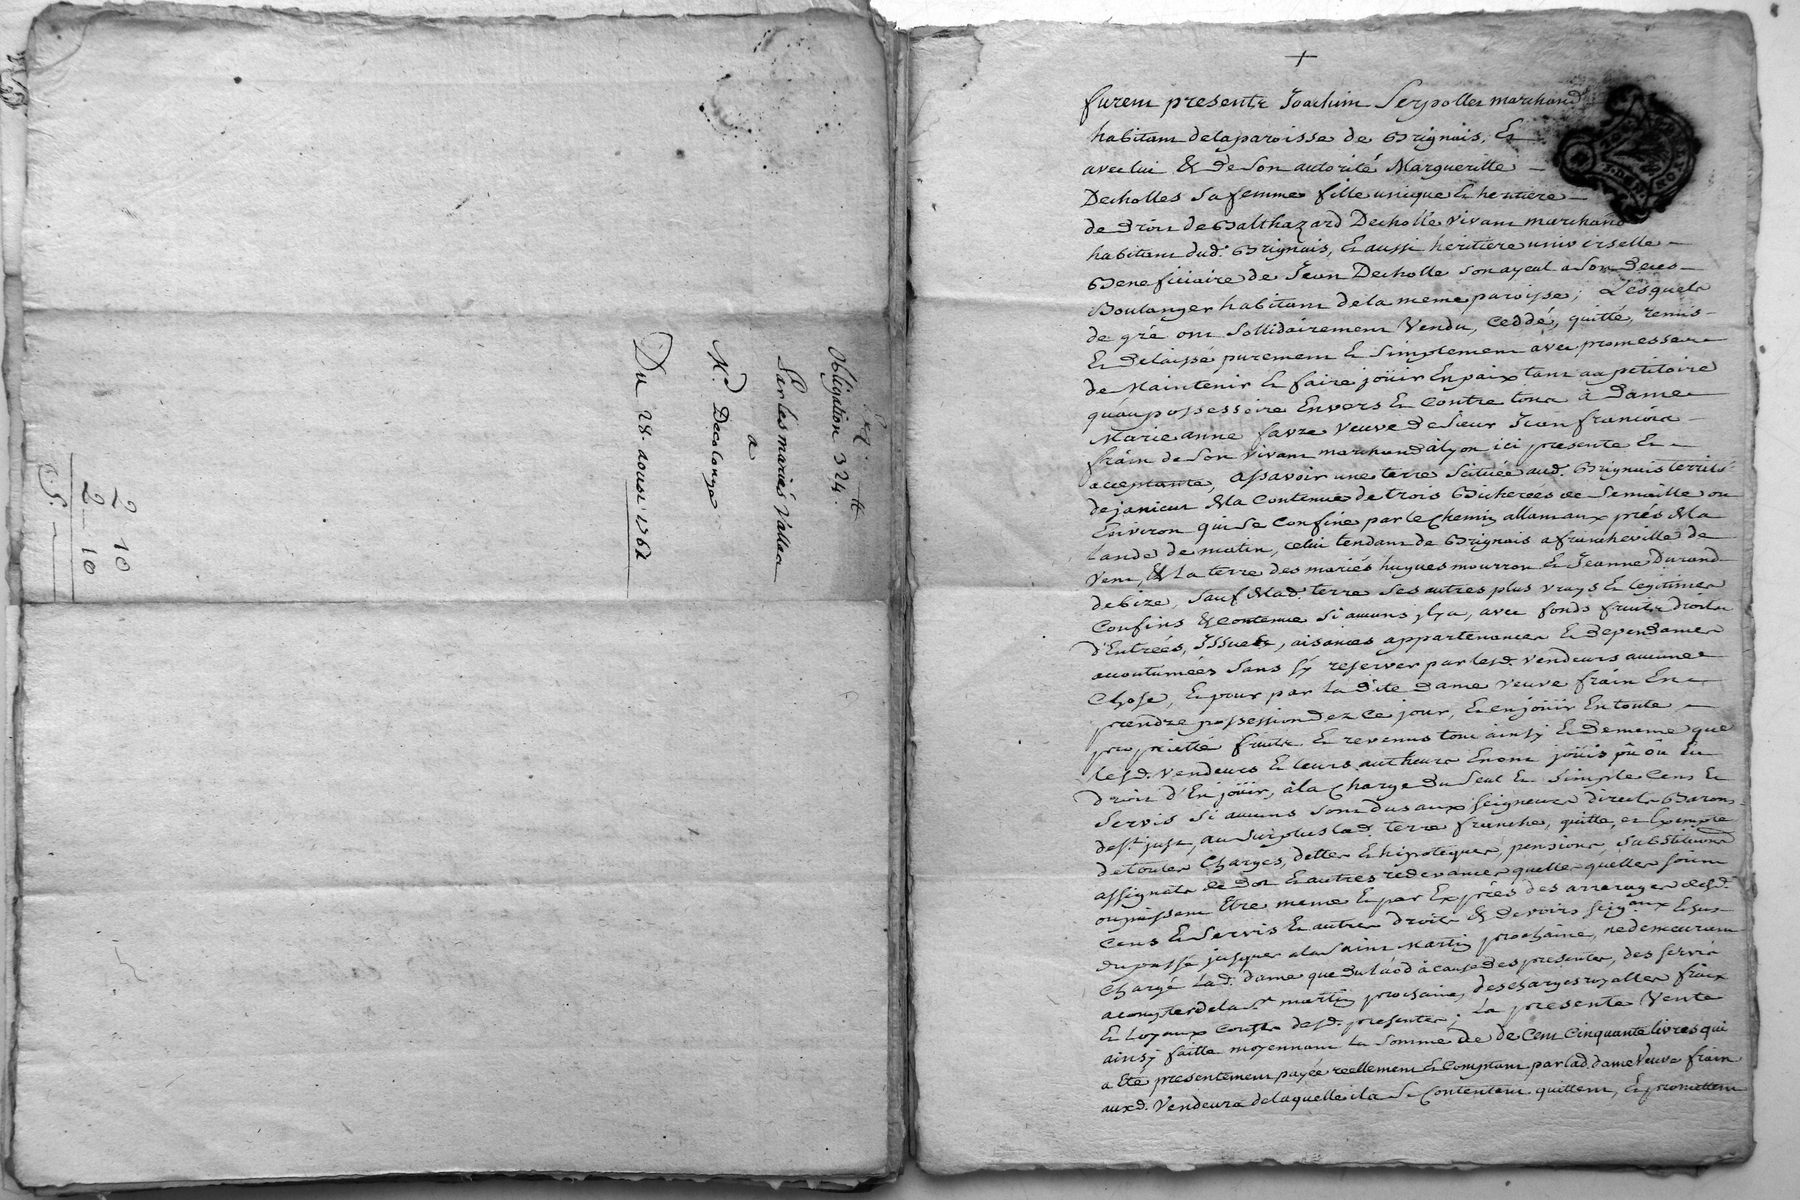 Obligation 324 ₶
Par les mariés Vallea
a
Mr. Decolonge
Du 28. aoust 1762
2 10
2 10
5.
+
furent presents Joachim Serpollet marchand
habitant de la paroisse de Brignais, Et
avec lui & de Son autorité Margueritte
Decholles Sa femme fille unique Et heritiere
de droit de Balthazard Decholle vivant marchand
habitant dud. Brignais, Et aussi heritiere universelle
Beneficiaire de Jean Decholle Son ayeul a Son deces
Boulanger habitant de la meme paroisse; Lesquels
de gré ont Sollidairement Vendu, Ceddé, quitté, remis
Et delaissé purement Et Simplement avec promesse
de Maintenir Et faire joüir En paix tant au petitoire
quau possessoire Envers Et Contre tous à Dame
Marie anne favre Veuve de Sieur Jean francois
frain de Son vivant marchand à lyon ici presente Et
acceptante, assavoir une terre Scituée aud. Brignais territ.
de janicu & la Contenue de trois Bicherées de Semaille ou
Environ qui Se Confine par le Chemin allant aux prés & la
lande de matin, celui tendant de Brignais a francheville de
Vent, & la terre des mariés hugues mourron Et Jeanne Durand
de bize, Sauf & lad. terre Ses autres plus vrays Et legitimes
Confins & Contenue Si aucuns il y a, avec fonds fruits droits
d'Entrées, Issues, aisances appartenances Et dependances
acoutumées Sans S'y reserver par lesd. vendeurs aucune
Chose, Et pour par la dite Dame veuve frain En
prendre possession dez Ce jour, Et en joüir En toute
proprietté fruits Et revenus tout ainsy Et de meme que
lesd. Vendeurs Et leurs autheurs En ont joüis pû ou dû
droit d'En joüir, à la Charge du Seul Et Simple Cens Et
Servis Si aucuns Sont dus aux Seigneurs directs Barons
de St. just, au Surplus lad. terre franche, quitte, et Exempte
de toutes Charges, dettes Et hipoteques, pensions, Substitutions
assignats de dot Et autres redevances quelles quelles soient
ou puissent Etre meme Et par Exprès des arrerages desd.
Cens Et Servis Et autres droits & devoirs Seigaux Echus
du passé jusques a la Saint Martin prochaine, ne demeurant
Chargé lad. dame que du laod à cause des presentes, des Servis
a compter de la St. martin prochaine, des charges royalles fraix
Et loyaux Couts desd. presentes; la presente Vente
ainsy faitte moyennant la Somme de de Cent Cinquante livres qui
a Eté presentement payée reellement Et Comptant par lad. dame Veuve frain
auxd. Vendeurs de laquelle ils Se Contentent quittent, Et promettent